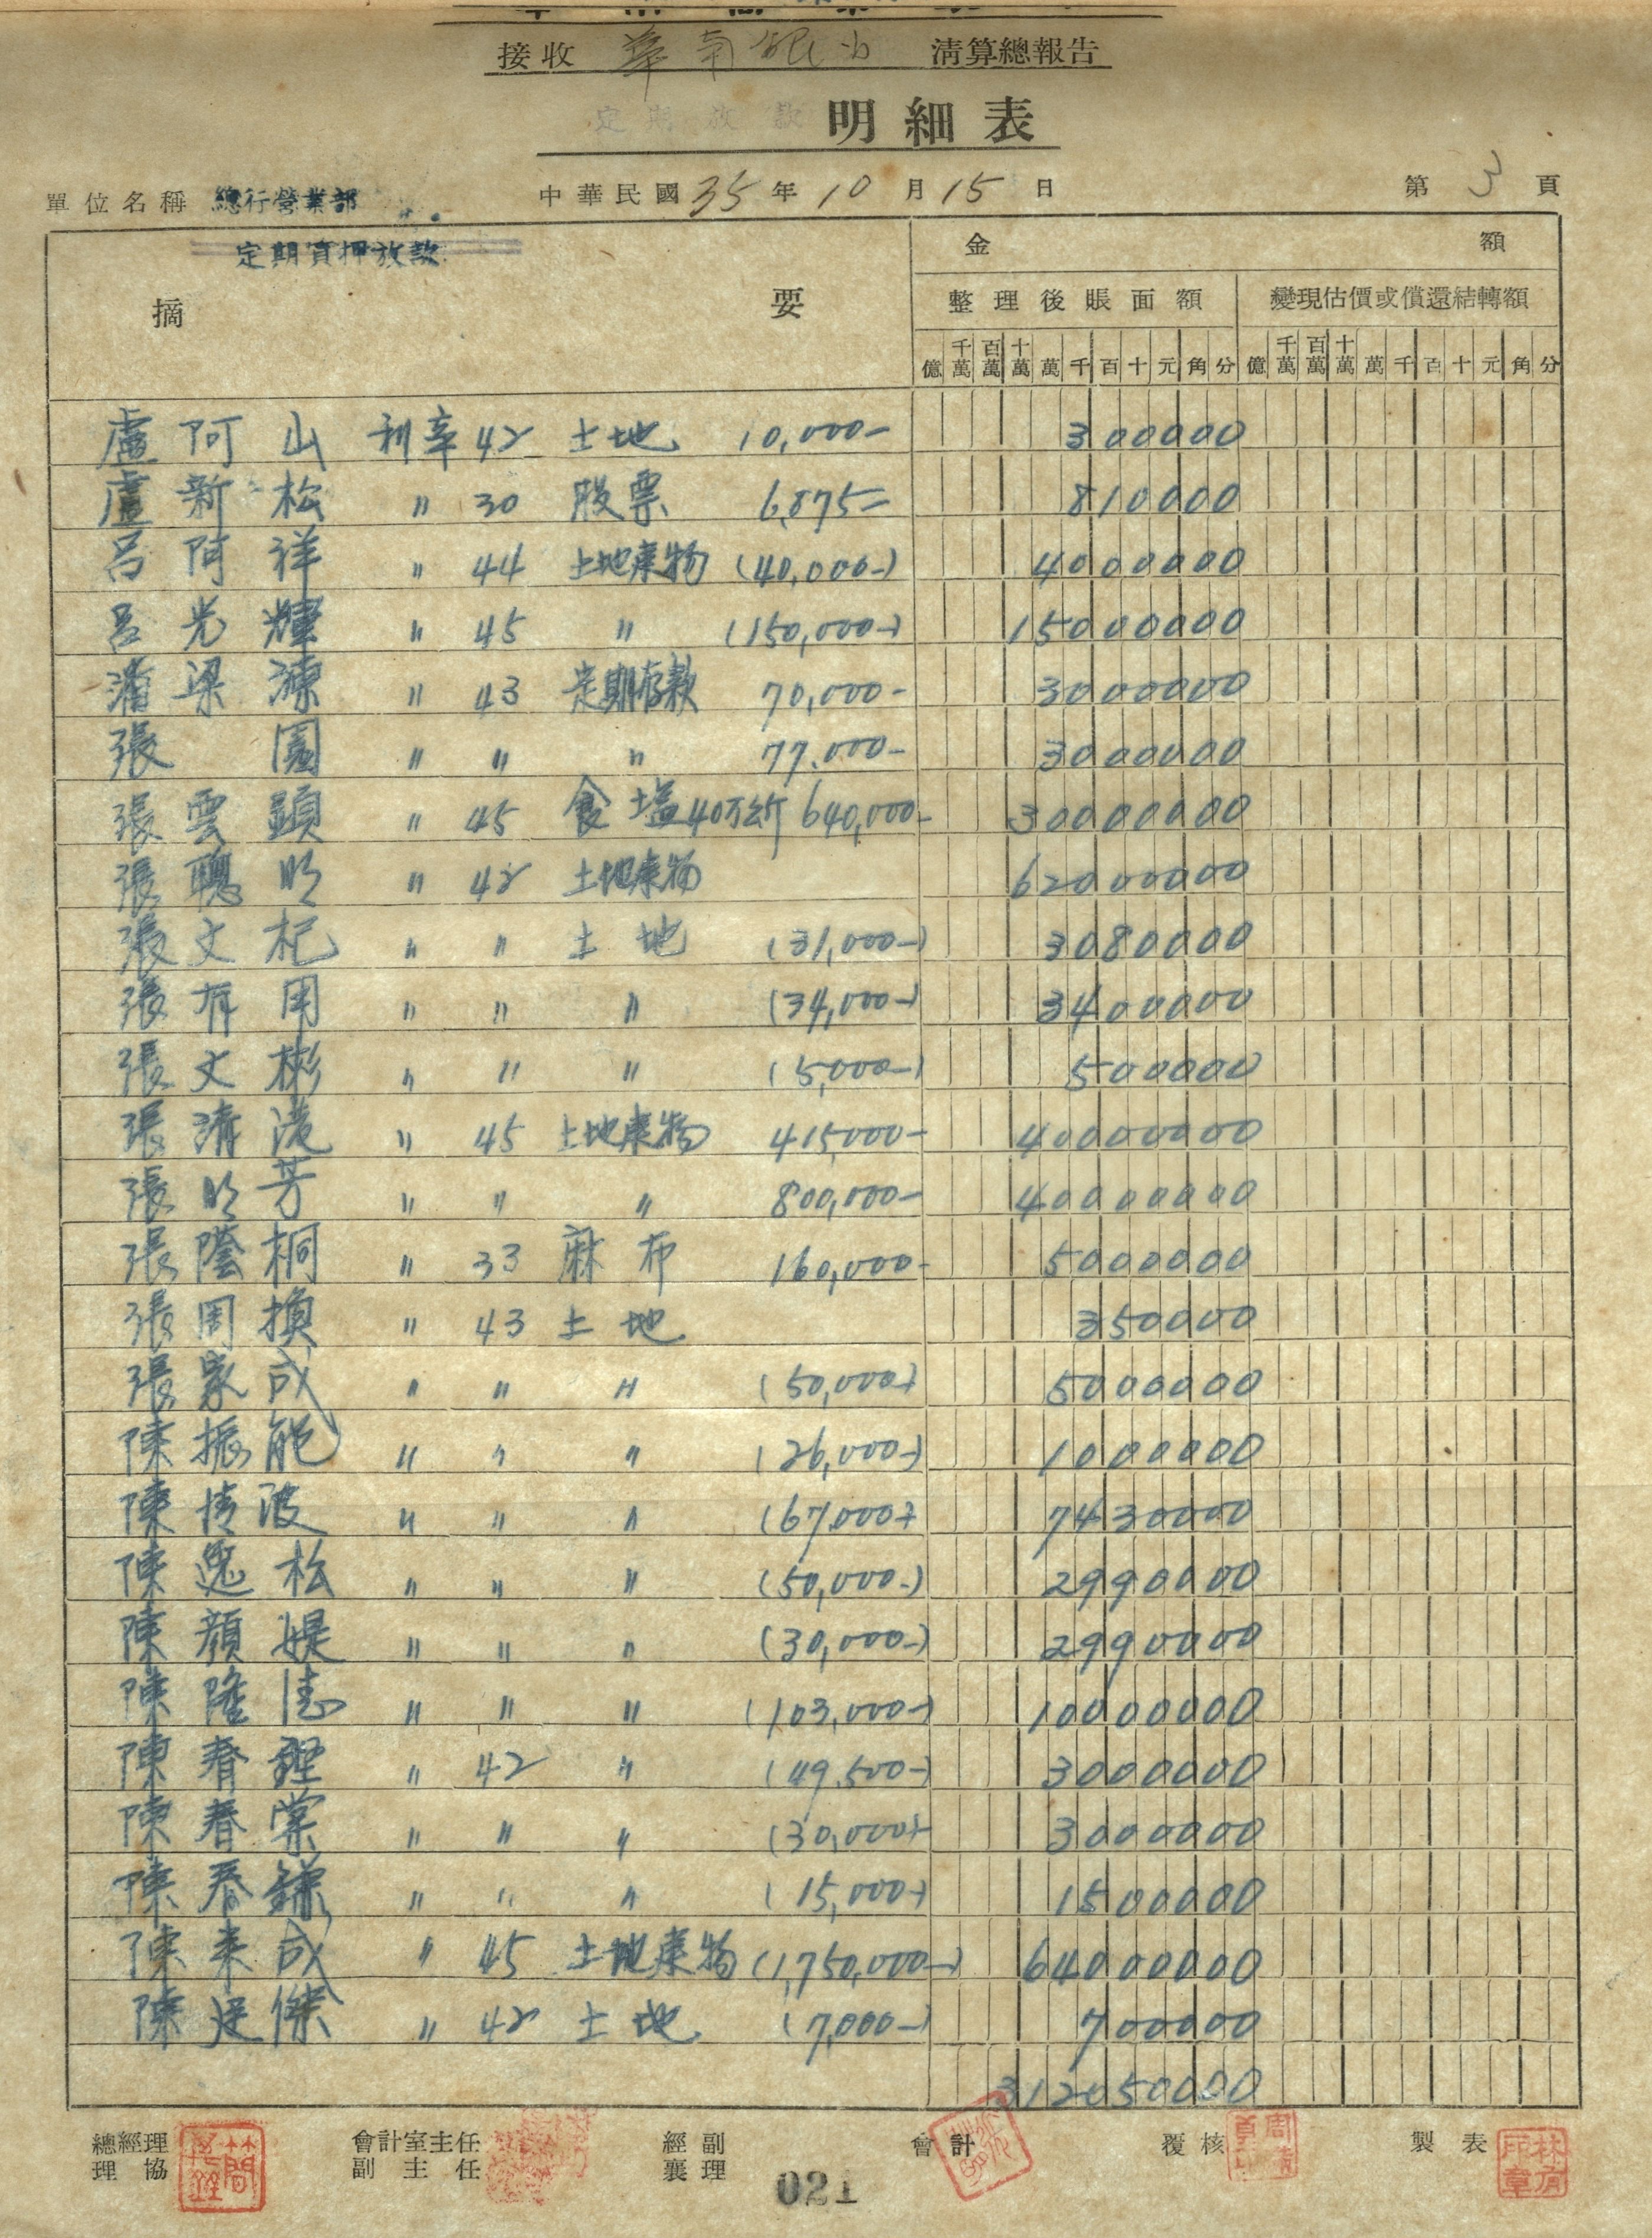 接收 華南銀行 清算總報告
定期放款 明細表
單位名稱 總行營業部 中華民國35年10月15日 第3頁
定期質押放款
摘要 金額
整理後賬面額 變現估價或償還結轉額
億 千萬 百萬 十萬 萬 千 百 十 元 角 分 億 千萬 百萬 十萬 萬 千 百 十 元 角 分
盧阿山 利率 42 土地 10,000- 300000
盧新松 〃 30 股票 6,875= 810000
呂阿祥 〃 44 土地建物 (40,000-) 4000000
呂光輝 〃 45 〃 (150,000-) 15000000
潘梁 〃 43 定期存款 70,000- 3000000
張園 〃 〃 〃 77,000- 3000000
張雲顕 〃 45 食塩40万公斤 640,000- 30000000
張聰明 〃 42 土地建物 62000000
張文杞 〃 〃 土地 (31,000-) 3080000
張有用 〃 〃 〃 (34,000-) 3400000
張文彬 〃 〃 〃 (5,000-) 500000
張清港 〃 45 土地建物 415,000- 40000000
張明芳 〃 〃 〃 800,000- 40000000
張蔭桐 〃 33 麻布 160,000- 5000000
張周換 〃 43 土地 350000
張家成 〃 〃 〃 (50,000-) 5000000
陳振能 〃 〃 〃 (26,000-) 1000000
陳清波 〃 〃 〃 (67,000-) 7430000
陳逸松 〃 〃 〃 (50,000-) 2990000
陳顏媞 〃 〃 〃 (30,000-) 2990000
陳隆 〃 〃 〃 (103,000-) 10000000
陳春鏗 〃 42 〃 (49,500-) 3000000
陳春棠 〃 〃 〃 (30,000-) 3000000
陳春鎌 〃 〃 〃 (15,000-) 1500000
陳来成 〃 45 土地建物 (1,750,000-) 64000000
陳廷傑 〃 42 土地 (7,000-) 700000
312050000
總經理 會計室主任 經副 會計 覆核 製表
理協 副主任 襄理
021